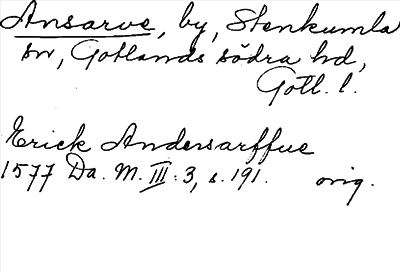 Ansarve, by, Stenkumla
sn, Gotlands södra hd,
Gotl. l.
Erick Andersarffue
1577 Da. M. III:3, s. 191. orig.